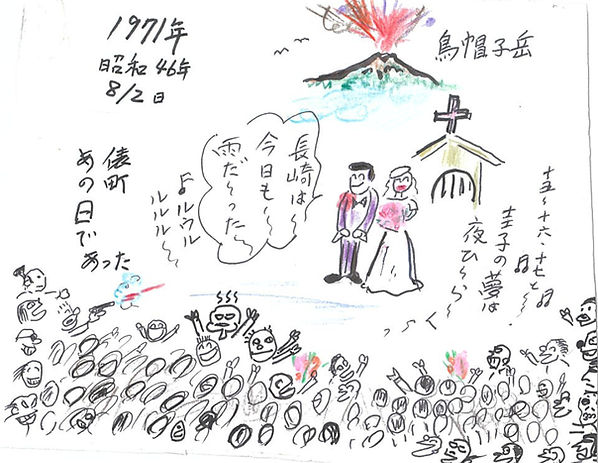 1971年
昭和46年
8/2日
鳥帽子岳
長崎は〜
今日も〜〜
雨だ〜った
♪ルウル
ルルル〜
俵町
あの日であった
十五〜十六・十七と〜♪
圭子の夢は♪
夜ひ〜ら〜
く〜